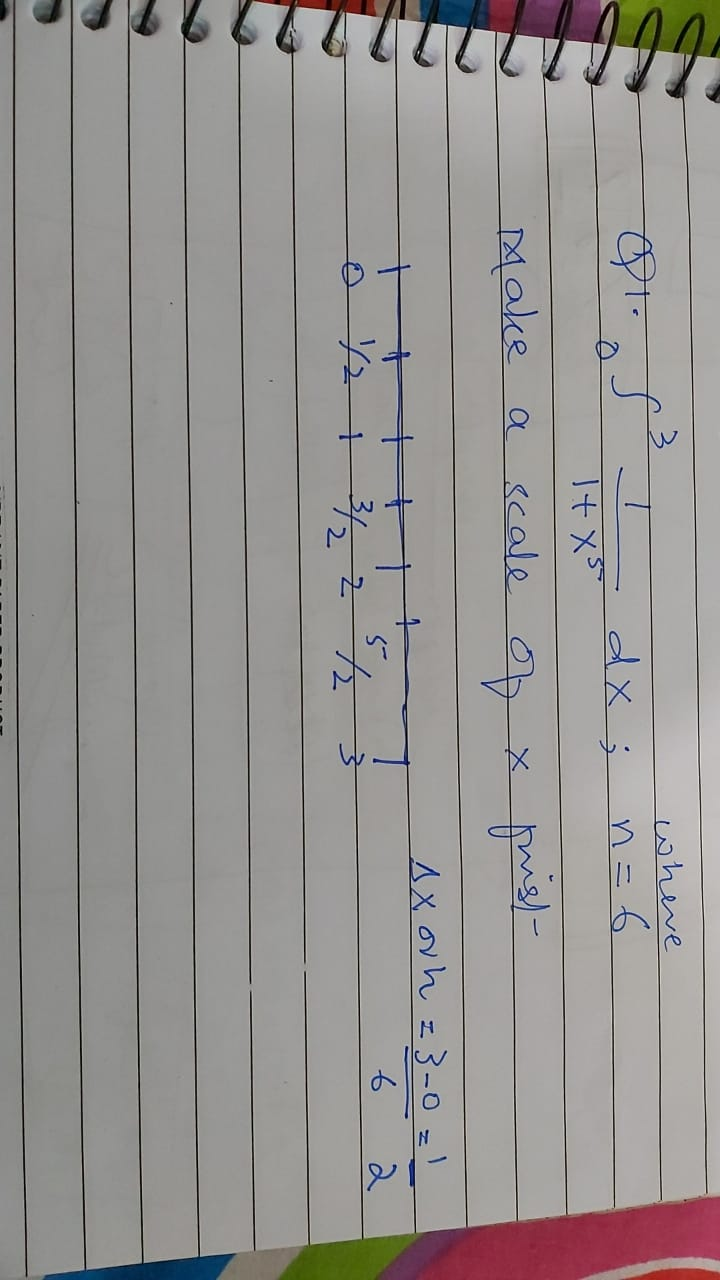 Q1. 0∫3 1/1+x⁵ dx ; where n = 6
Make a scale of x first
0 1/2 1 3/2 2 5/2 3
Δx or h = 3-0/6 = 1/2